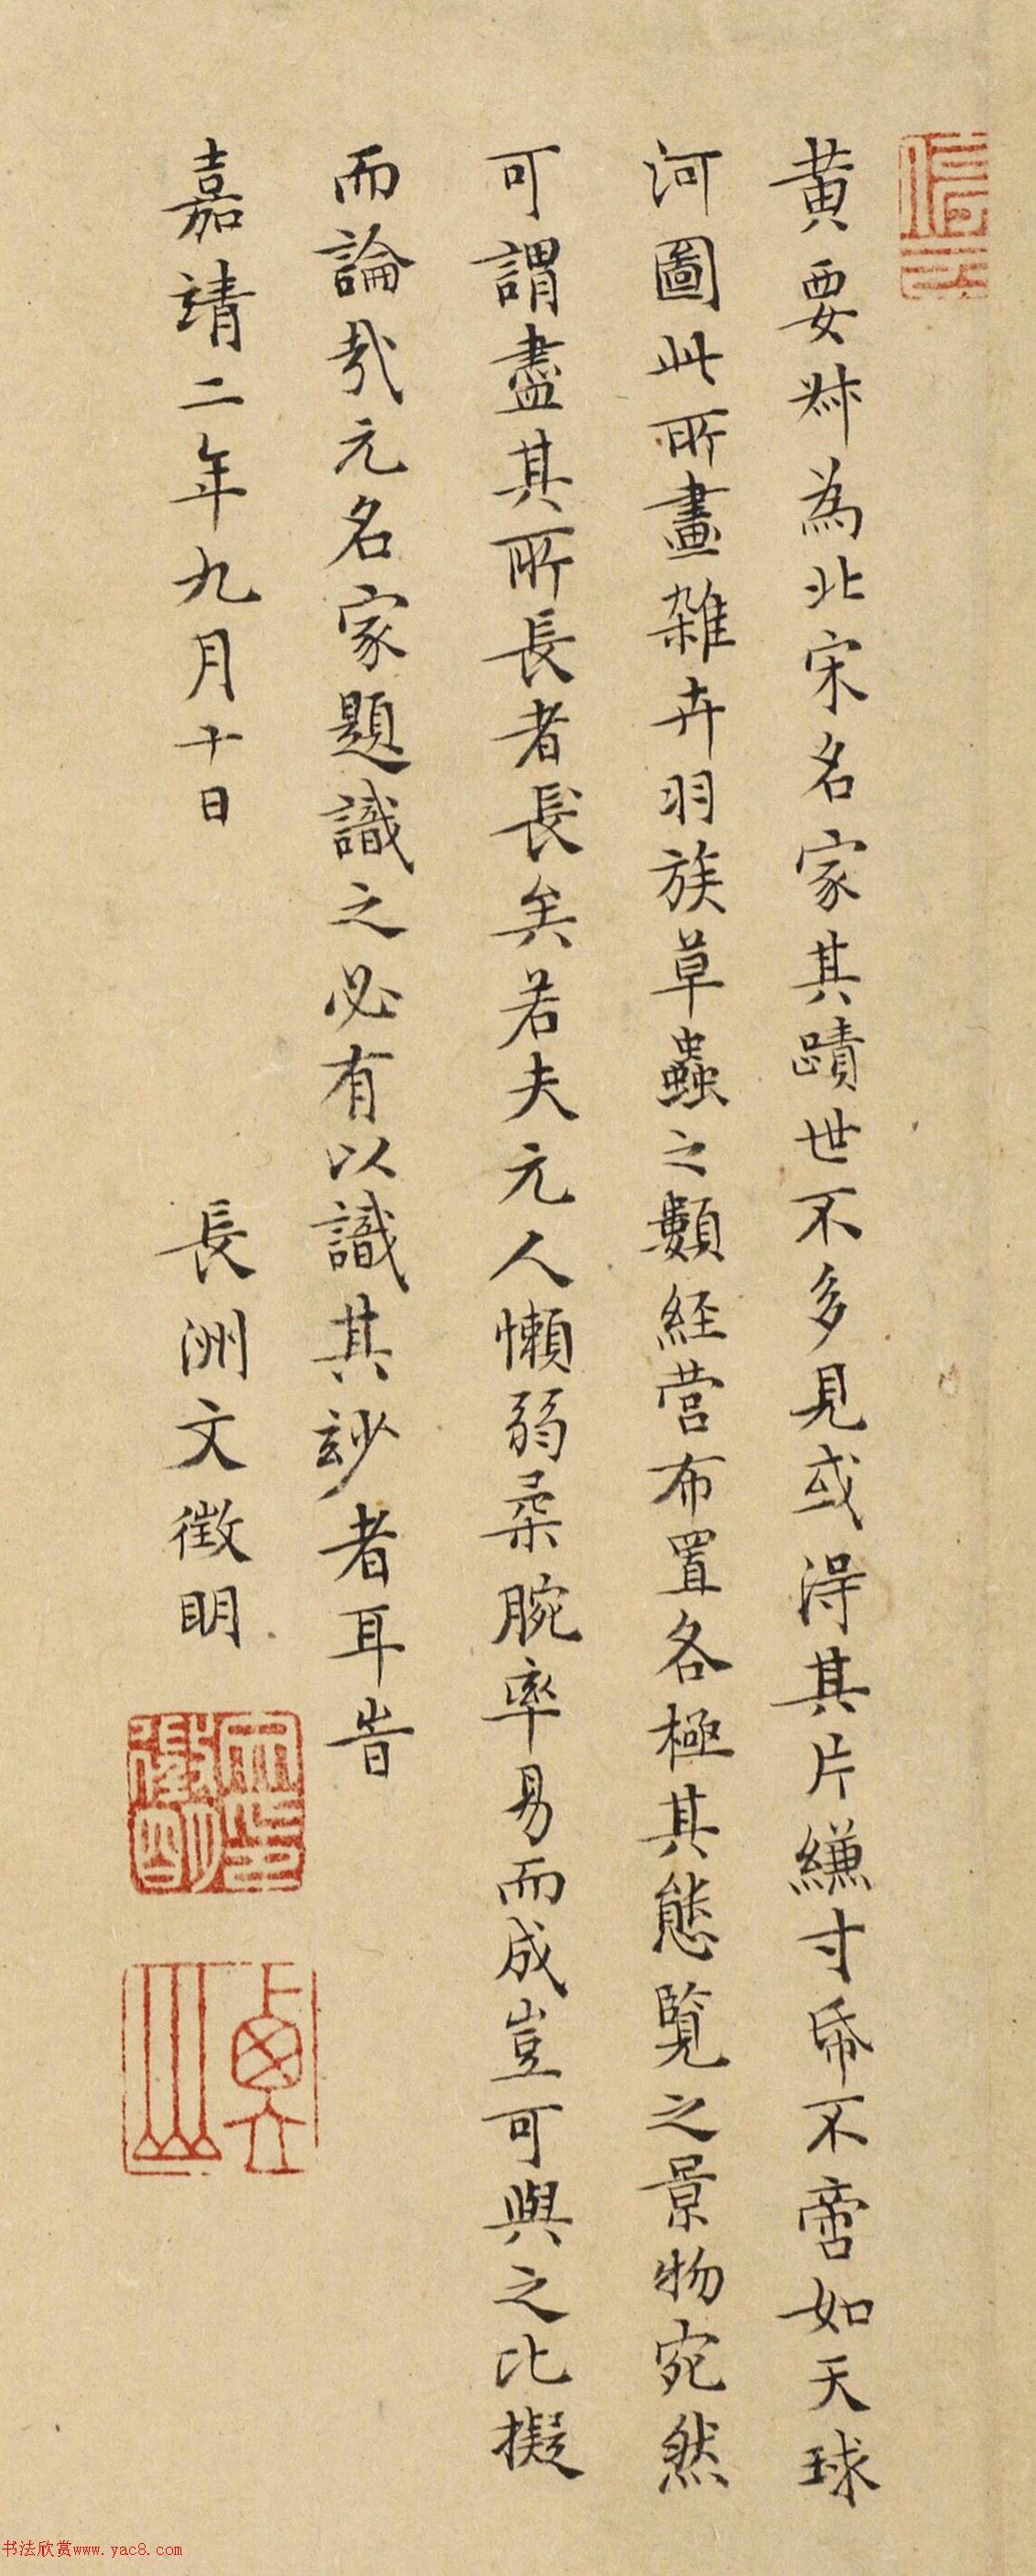 黄要叔為北宋名家其蹟世不多見或得其片縑寸帋不啻如天球
河圖此所畫雜卉羽族草蟲之類經营布置各極其態覧之景物宛然
可謂盡其所長者長矣若夫元人懶弱柔腕率易而成豈可與之比擬
而論哉元名家題識之必有以識其玅者耳旹
嘉靖二年九月十日
長洲文徵明
書法欣赏www.yac8.com